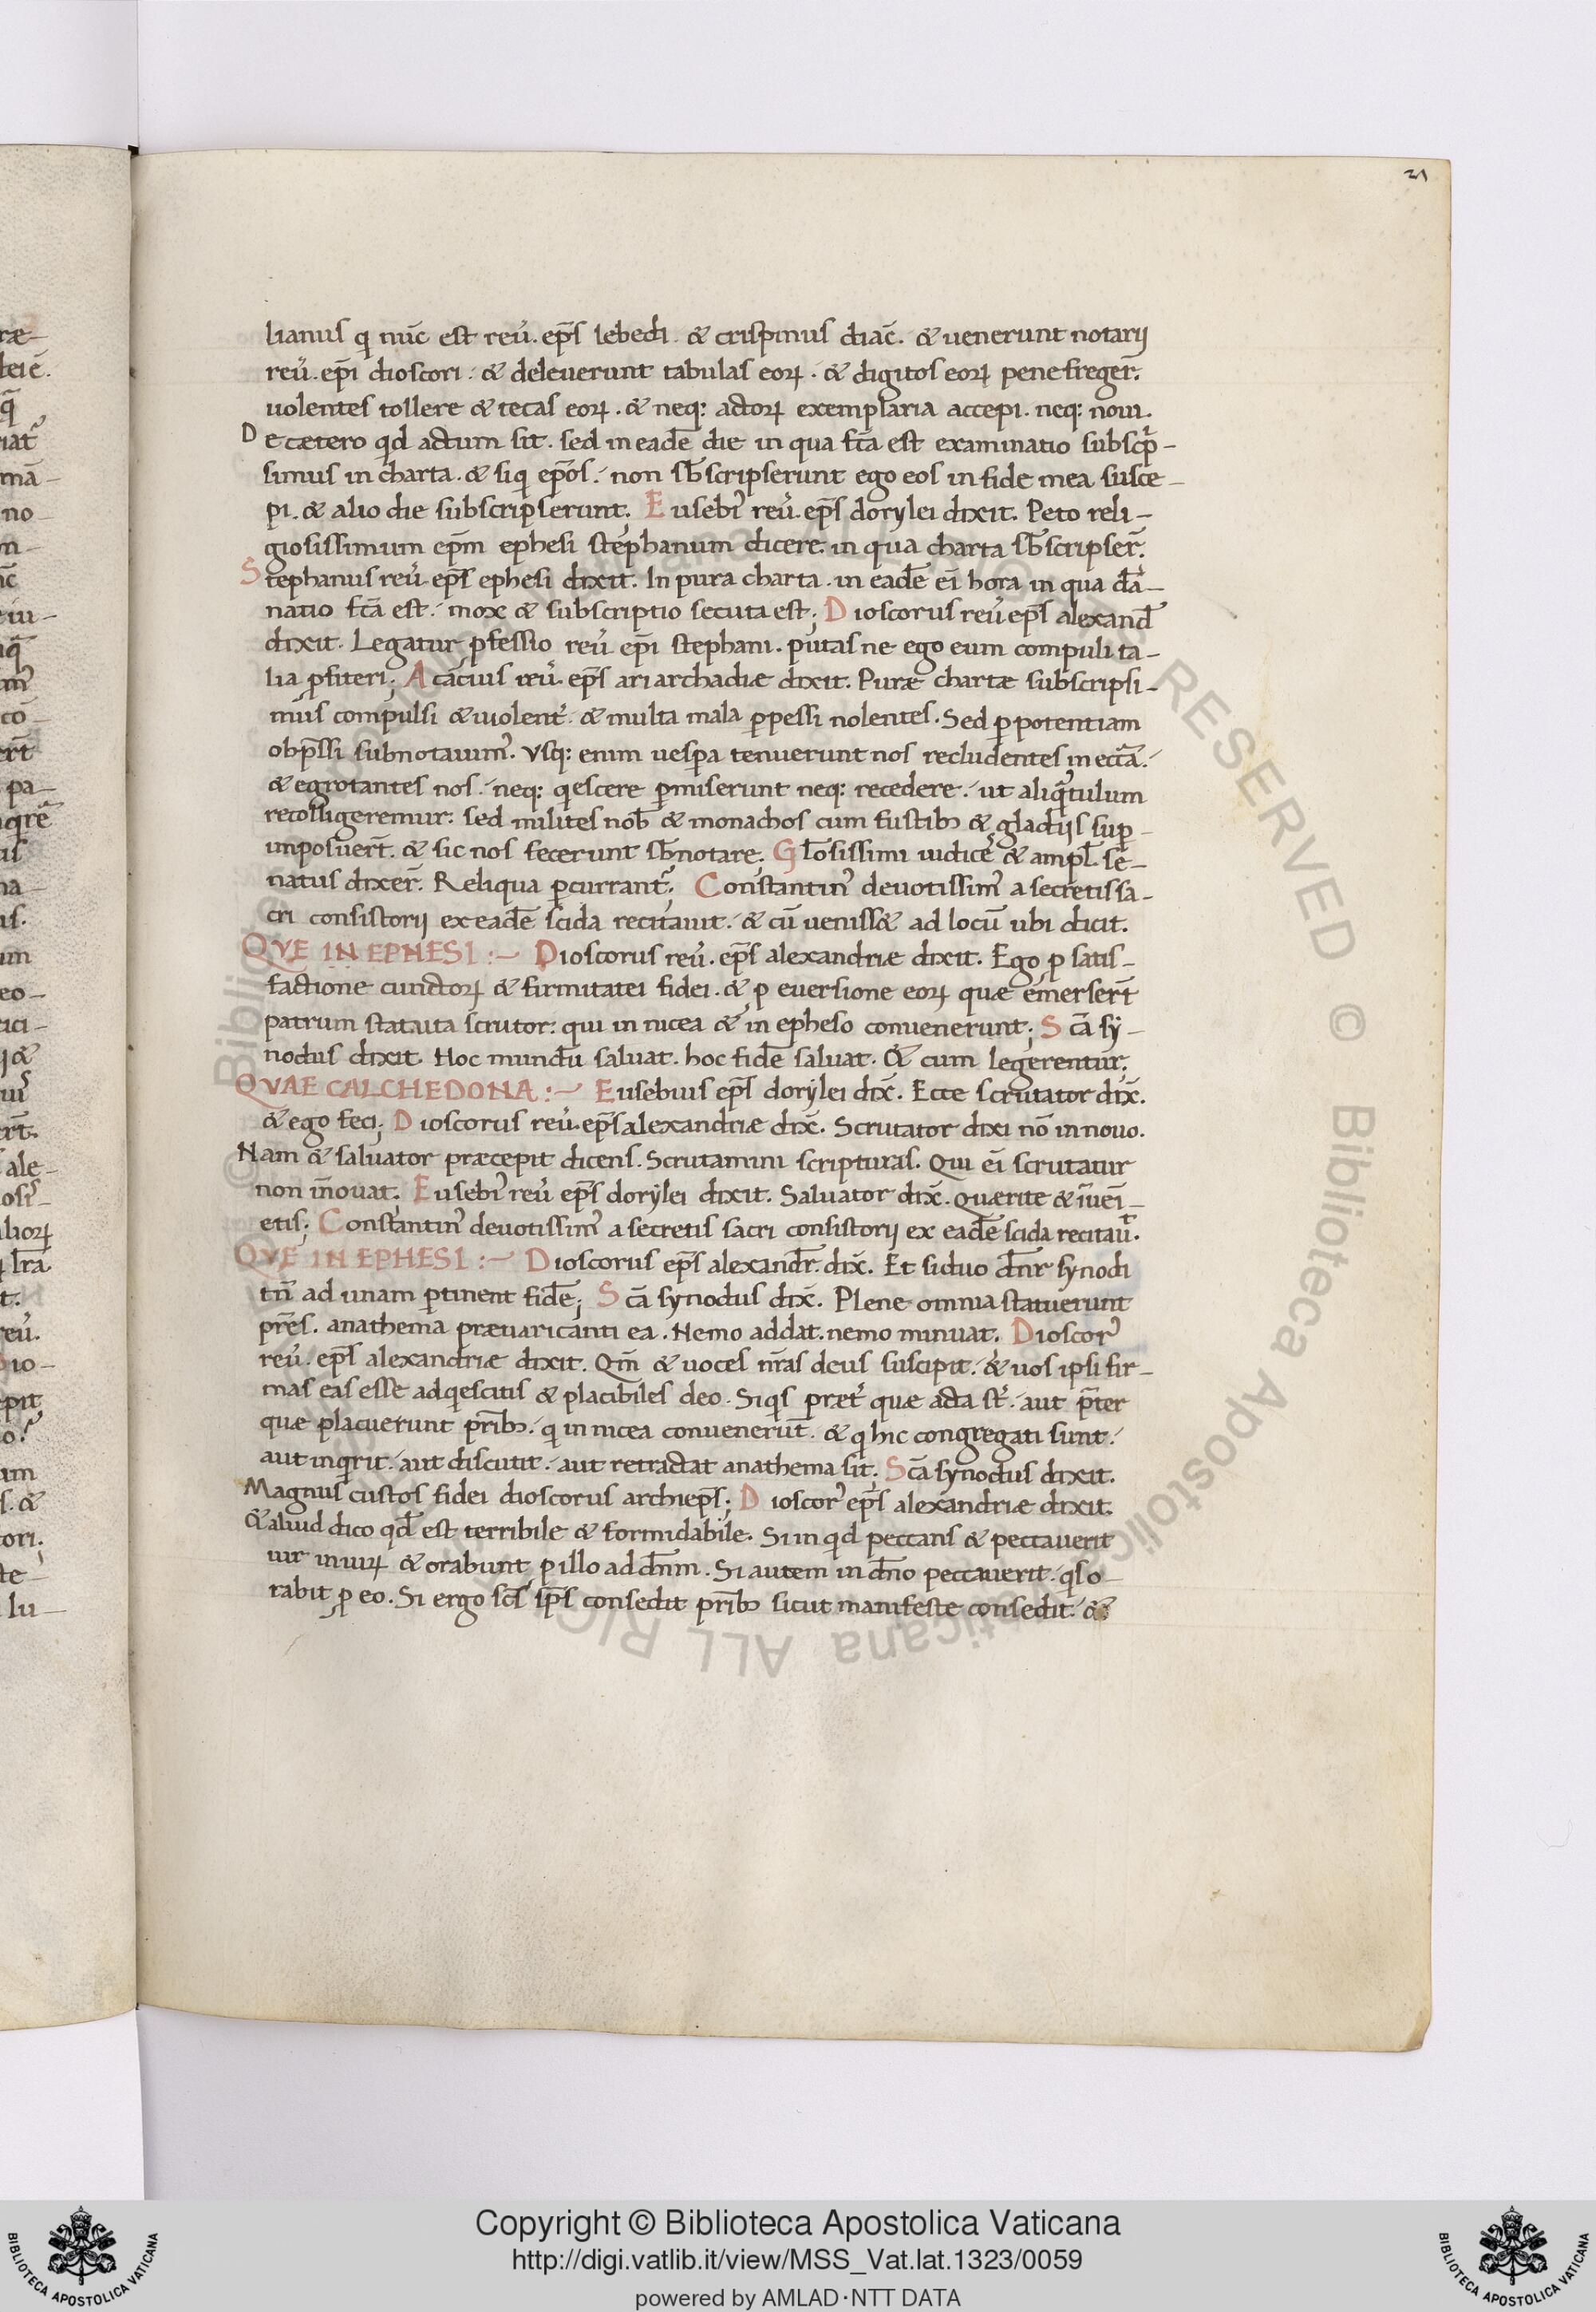 21
lianus q nūc est reu̓. ep̄s lebedi. & crispinus diac̄. & uenerunt notarij
reu̓. ep̄i dioscori. & deleuerunt tabulas eoꝝ. & digitos eoꝝ pene freger̄.
uolentes tollere & tecas eoꝝ. & neq; actoꝝ exemplaria accepi. neq; noui.
De cætero qd actum sit. sed in eadē die in qua fc̄a est examinatio subscp̄-
simus in charta. & siq ep̄os. non sƀscripserunt ego eos in fide mea susce-
pi. & alio die subscripserunt; Eusebi᾽ reu̓. ep̄s dorylei dixit. Peto reli-
giosissimum ep̄m ephesi stephanum dicere. in qua charta sƀscripser̄.
Stephanus reu̓. ep̄s ephesi dixit. In pura charta. in eadē eī hora in qua dā-
natio fc̄a est. mox & subscriptio secuta est; Dioscorus reu̓ ep̄s alexand̄
dixit. Legatur ꝓfessio reu̓ ep̄i stephani. putas ne ego eum compuli ta-
lia ꝓfiteri; Acacius reu̓. ep̄s ariarchadiæ dixit. Puræ chartæ subscripsi-
mus compulsi & uiolent᾽. & multa mala ꝑpessi nolentes. Sed ꝑ potentiam
obp̄ssi subnotauim᾽. Vsq; enim uesꝑa tenuerunt nos recludentes in eccl̄a.
& egrotantes nos. neq; qescere ꝑmiserunt neq; recedere. ut aliq̄tulum
recolligeremur: sed milites nob̄ & monachos cum fustibꝫ & gladijs suꝑ-
imposuer̄t. & sic nos fecerunt sƀnotare; Gl̄osissimi iudices & ampl̄. se-
natus dixer̄. Reliqua ꝑcurrant᾽; Constantin᾽ deuotissim᾽ a secretis sa-
cri consistorij ex eadē scida recitauit. & cū uenisset ad locū ubi dicit.
QVE IN EPHESI :- Dioscorus reu̓. ep̄s alexandriæ dixit. Ego ꝓ satis-
factione cunctoꝝ & firmitatei fidei. & ꝓ euersione eoꝝ quæ emerser̄t
patrum statuta scrutor: qui in nicea & in epheso conuenerunt; Sc̄a sy-
nodus dixit. Hoc mundū saluat. hoc fidē saluat. & cum legerentur;
QVAE CALCHEDONA :- Eusebius ep̄s dorylei dix̄. Ecce scrutator dix̄.
& ego feci; Dioscorus reu̓. ep̄s alexandriæ dix̄. Scrutator dixi nō innouo.
Nam & saluator præcepit dicens. Scrutamini scripturas. Qui eī scrutatur
non īnouat; Eusebi᾽ reu̓ ep̄s dorylei dixit. Saluator dix̄. Quærite & īueni-
etis; Constantin᾽ deuotissim᾽ a secretis sacri consistorij ex eadē scida recitau̓t.
QVE IN EPHESI :- Dioscorus ep̄s alexandr̄. dix̄. Et si duo dn̄r synodi
tn̄ ad unam ꝑtinent fidē; Sc̄a synodus dix̄. Plene omnia statuerunt
pr̄es. anathema præuaricanti ea. Nemo addat. nemo minuat. Dioscor᾽
reu̓. ep̄s alexandriæ dixit. Qm̄ & uoces nr̄as deus suscipit. & uos ipsi fir-
mas eas esse adqescitis & placibiles deo. Siqs præt᾽ quæ acta st᾽. aut p̄ter
quæ placuerunt pr̄ibꝫ. q in nicea conuenerūt. & q hic congregati sunt.
aut inqrit. aut discutit. aut retractat anathema sit; Sc̄a synodus dixit.
Magnus custos fidei dioscorus archiep̄s; Dioscor᾽ ep̄s alexandriæ dixit.
& aliud dico qd̄ est terribile & formidabile. Si in qd peccans & peccauerit
uir in uiꝝ & orabunt ꝓ illo ad dn̄m. Si autem in dn̄o peccauerit. qs o-
rabit ꝓ eo. Si ergo sc̄s sp̄s consedit pr̄ibꝫ sicut manifeste consedit. &
Copyright © Biblioteca Apostolica Vaticana
http://digi.vatlib.it/view/MSS_Vat.lat.1323/0059
powered by AMLAD·NTT DATA